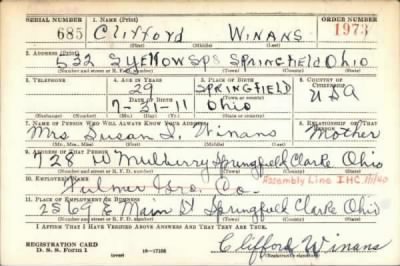 SERIAL NUMBER 1. NAME (Print) ORDER NUMBER
685 Clifford Winans 1973
(First) (Middle) (Last)
2. ADDRESS (Print)
532 S Yellow Sps Springfield Ohio
(Number and street or R. F. D. number) (Town) (County) (State)
3. TELEPHONE 4. AGE IN YEARS 5. PLACE OF BIRTH 6. COUNTRY OF CITIZENSHIP
29 Springfield
DATE OF BIRTH (Town or county) USA
7-21-11 Ohio
(Exchange) (Number) (Mo.) (Day) (Yr.) (State or country)
7. NAME OF PERSON WHO WILL ALWAYS KNOW YOUR ADDRESS 8. RELATIONSHIP OF THAT PERSON
Mrs Susan S. Winans Mother
(Mr., Mrs., Miss) (First) (Middle) (Last)
9. ADDRESS OF THAT PERSON
728 W Mulberry Springfield Clark Ohio
(Number and street or R. F. D. number) (Town) (County) (State)
10. EMPLOYER'S NAME Assembly Line IHC
Bros. Co.
11. PLACE OF EMPLOYMENT OR BUSINESS
2569 E Main St Springfield Clark Ohio
(Number and street or R. F. D. number) (Town) (County) (State)
I AFFIRM THAT I HAVE VERIFIED ABOVE ANSWERS AND THAT THEY ARE TRUE.
REGISTRATION CARD
D. S. S. Form 1 (over) 16-17105 Clifford Winans
(Registrant's signature)